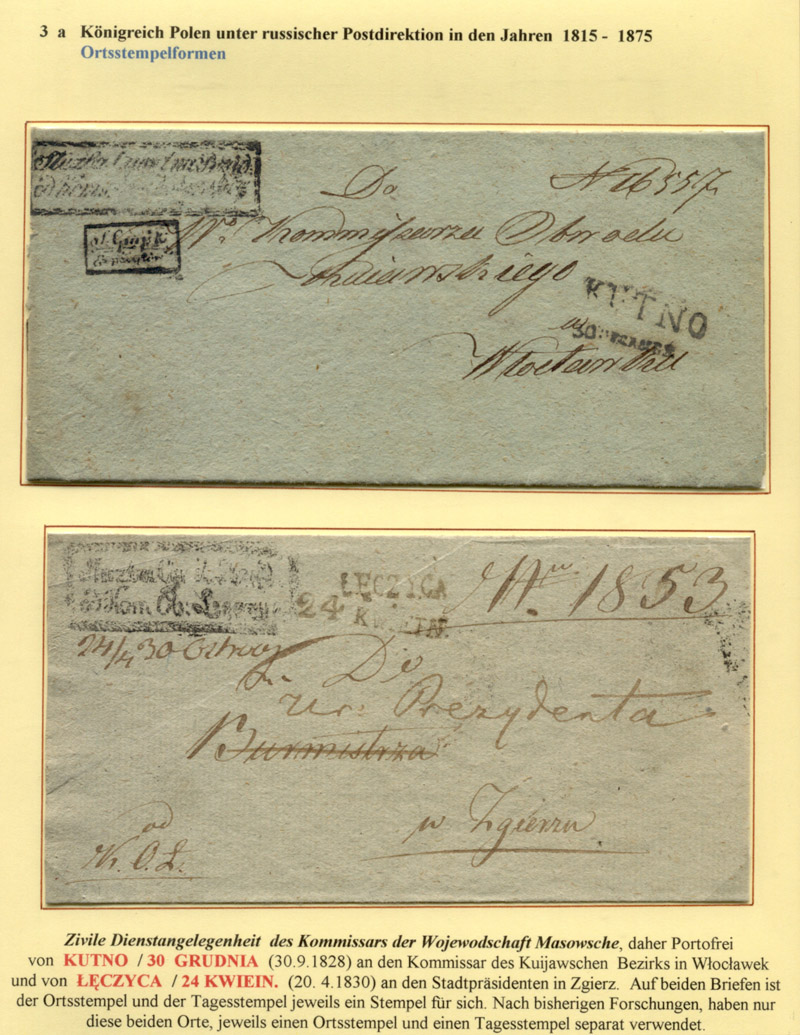 3 a Königreich Polen unter russischer Postdirektion in den Jahren 1815 - 1875
Ortsstempelformen
Do
N 16557
Kommissarza Obwodu
KUTNO
30
Do
Nro 1853
ŁĘCZYCA
24 KWIETN.
24/4 30
Ur: Prezydenta
Burmistrza
w Zgierzu
od
K. O. Ł.
Zivile Dienstangelegenheit des Kommissars der Wojewodschaft Masowsche, daher Portofrei
von KUTNO / 30 GRUDNIA (30.9.1828) an den Kommissar des Kuijawschen Bezirks in Włocławek
und von ŁĘCZYCA / 24 KWIEIN. (20. 4.1830) an den Stadtpräsidenten in Zgierz. Auf beiden Briefen ist
der Ortsstempel und der Tagesstempel jeweils ein Stempel für sich. Nach bisherigen Forschungen, haben nur
diese beiden Orte, jeweils einen Ortsstempel und einen Tagesstempel separat verwendet.